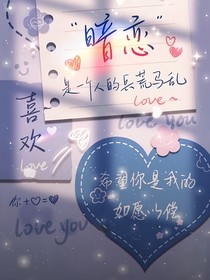 "暗恋"
是一个人的兵荒马乱
love~
喜
欢
love
love you
希望你是我的
如愿以偿
你+♡=♥
love you